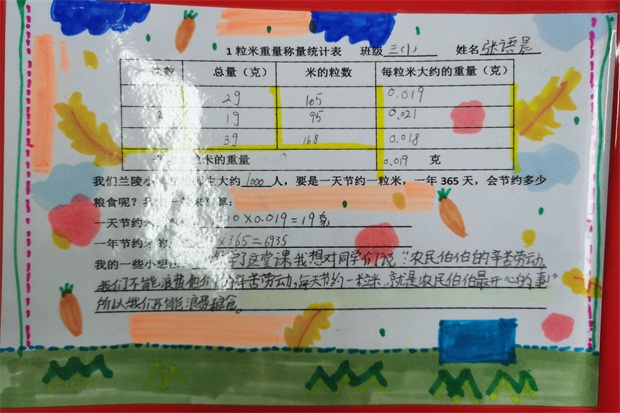 1 粒米重量称量统计表 班级 三(1) 姓名 张语晨
数 总量（克） 米的粒数 每粒米大约的重量（克）
2g 105 0.019
2 1g 95 0.021
3g 168 0.018
米的重量 0.019 克
我们兰陵小 大约 1000 人，要是一天节约一粒米，一年 365 天，会节约多少
粮食呢？我
一天节约 0×0.019=19克
一年节约米的 ×365=6935
我的一些小想 学了这堂课,我想对同学们说:"农民伯伯的辛苦劳动,
我们不能浪费他们的辛苦劳动,每天节约一粒米,就是农民伯伯最开心的事"
所以我们不能浪费粮食。